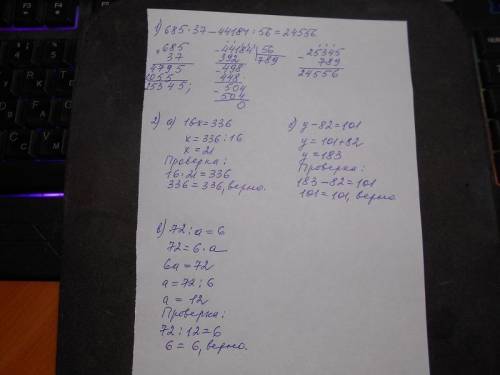 1) 685·37-44184:56=24556
× 685
37
4795
2055
25345;
- 44184 | 56
392 789
- 498
448
- 504
504
0
- 25345
789
24556
2) а) 16x=336
x=336:16
x=21
Проверка:
16·21=336
336=336, верно.
б) y-82=101
y=101+82
y=183
Проверка:
183-82=101
101=101, верно
в) 72:a=6
72=6·a
6a=72
a=72:6
a=12
Проверка:
72:12=6
6=6, верно.